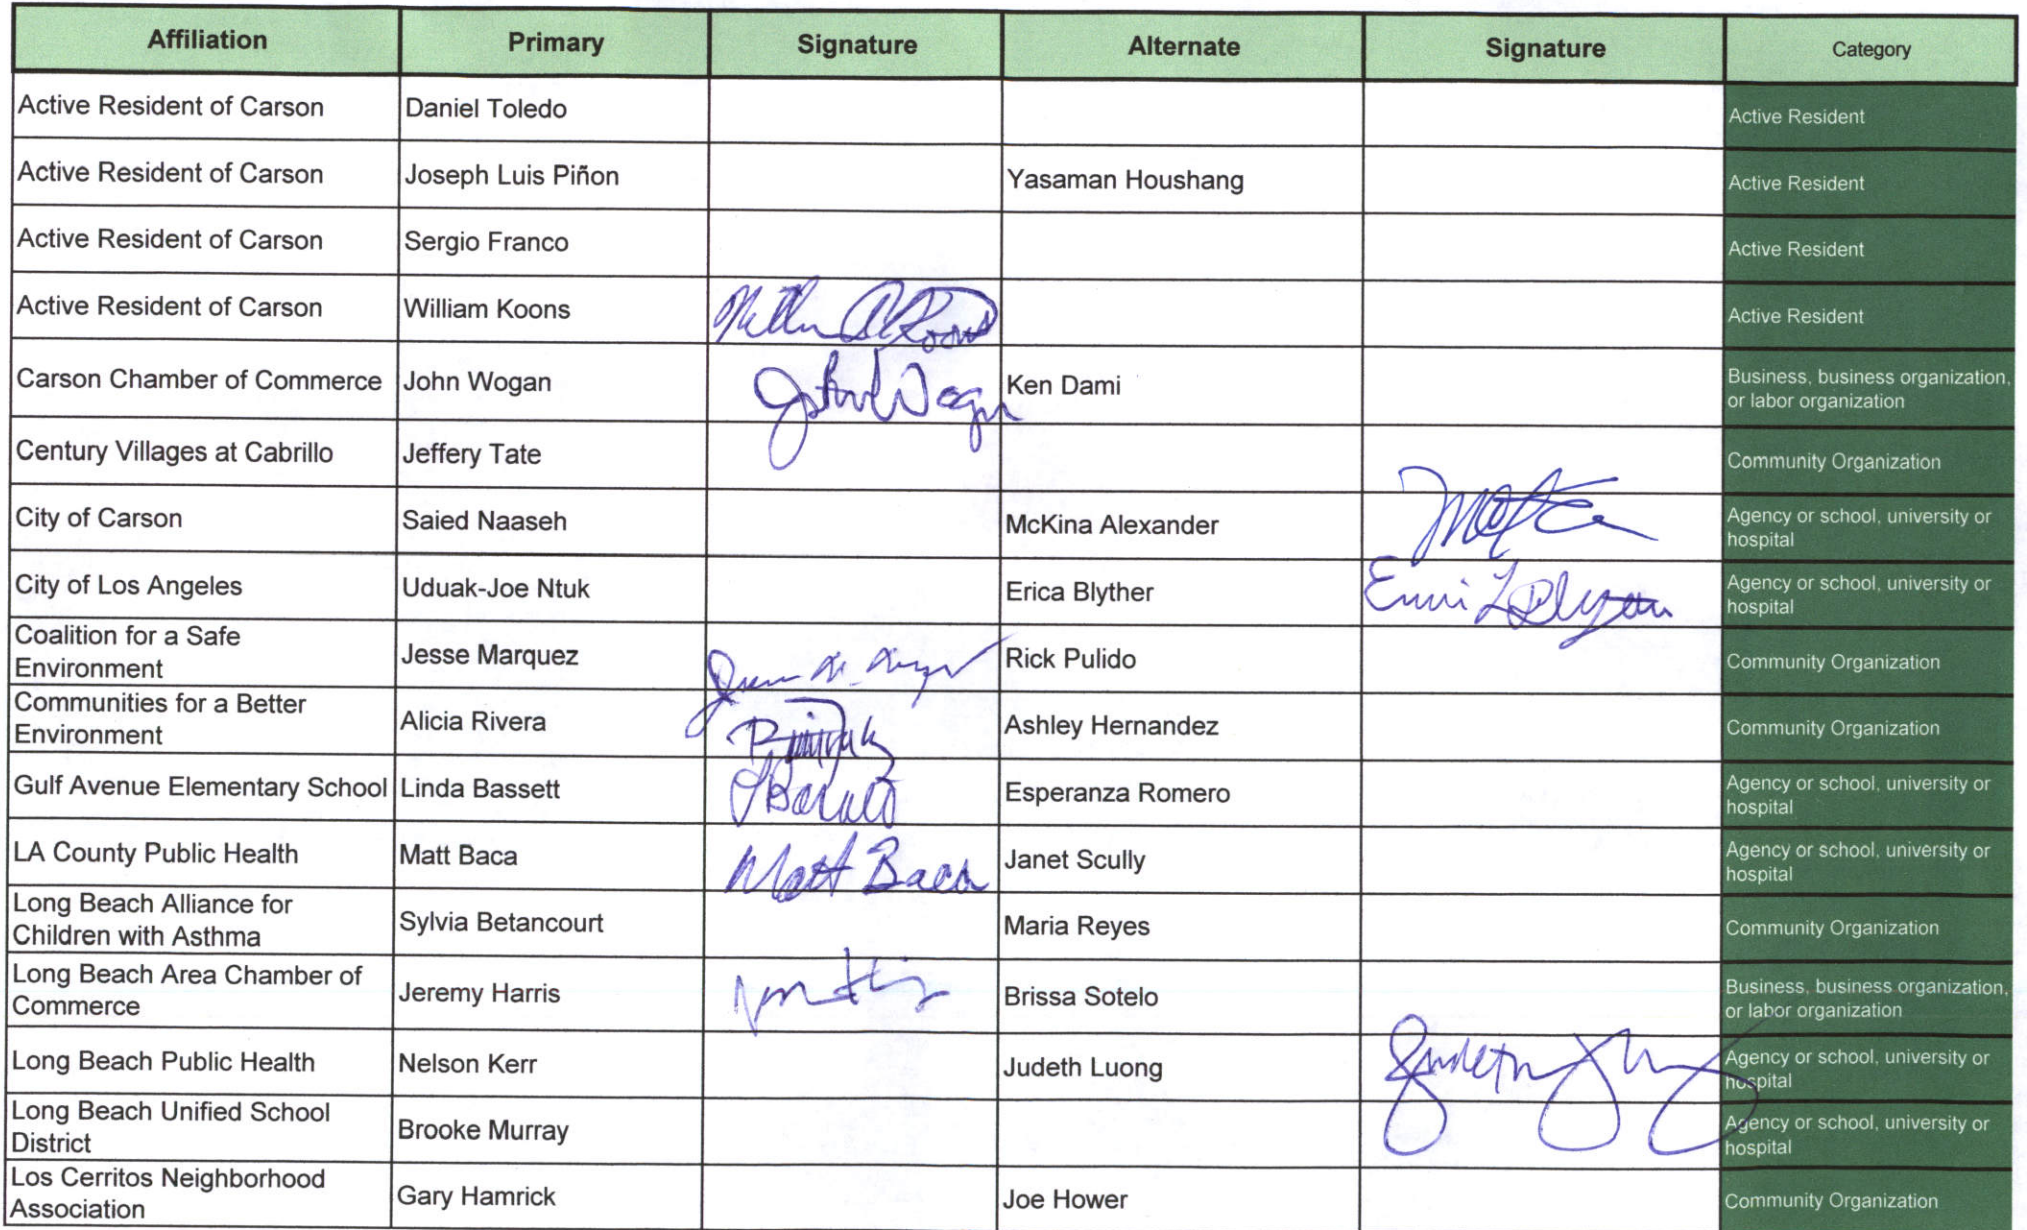 Affiliation Primary Signature Alternate Signature Category
Active Resident of Carson Daniel Toledo Active Resident
Active Resident of Carson Joseph Luis Piñon Yasaman Houshang Active Resident
Active Resident of Carson Sergio Franco Active Resident
Active Resident of Carson William Koons Active Resident
Carson Chamber of Commerce John Wogan John Wogan Ken Dami Business, business organization,
or labor organization
Century Villages at Cabrillo Jeffery Tate Community Organization
City of Carson Saied Naaseh McKina Alexander Agency or school, university or
hospital
City of Los Angeles Uduak-Joe Ntuk Erica Blyther Agency or school, university or
hospital
Coalition for a Safe
Environment Jesse Marquez Rick Pulido Community Organization
Communities for a Better
Environment Alicia Rivera Ashley Hernandez Community Organization
Gulf Avenue Elementary School Linda Bassett Esperanza Romero Agency or school, university or
hospital
LA County Public Health Matt Baca Matt Baca Janet Scully Agency or school, university or
hospital
Long Beach Alliance for
Children with Asthma Sylvia Betancourt Maria Reyes Community Organization
Long Beach Area Chamber of
Commerce Jeremy Harris Brissa Sotelo Business, business organization,
or labor organization
Long Beach Public Health Nelson Kerr Judeth Luong Judeth Agency or school, university or
hospital
Long Beach Unified School
District Brooke Murray Agency or school, university or
hospital
Los Cerritos Neighborhood
Association Gary Hamrick Joe Hower Community Organization